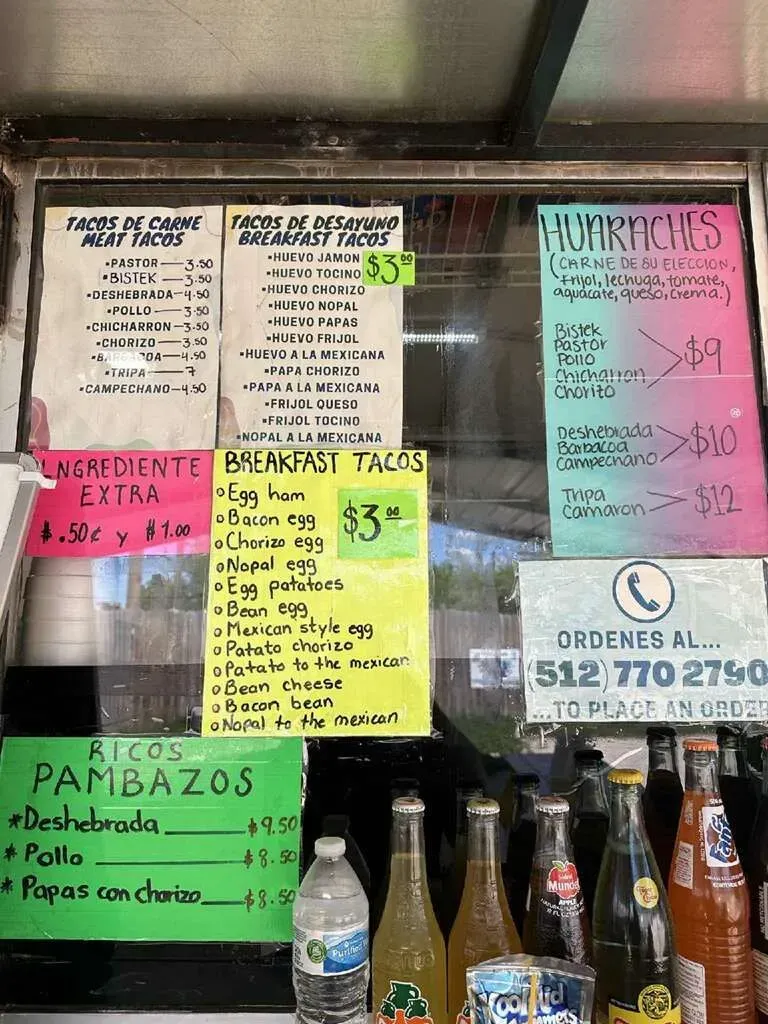 TACOS DE CARNE
MEAT TACOS
•PASTOR—3.50
•BISTEK—3.50
•DESHEBRADA—4.50
•POLLO—3.50
•CHICHARRON—3.50
•CHORIZO—3.50
•BARBACOA—4.50
•TRIPA—7
•CAMPECHANO—4.50
TACOS DE DESAYUNO
BREAKFAST TACOS
•HUEVO JAMON
•HUEVO TOCINO
•HUEVO CHORIZO
•HUEVO NOPAL
•HUEVO PAPAS
•HUEVO FRIJOL
•HUEVO A LA MEXICANA
•PAPA CHORIZO
•PAPA A LA MEXICANA
•FRIJOL QUESO
•FRIJOL TOCINO
•NOPAL A LA MEXICANA
$3.00
HUARACHES
(CARNE DE SU ELECCION,
frijol, lechuga, tomate,
aguacate, queso, crema.)
Bistek
Pastor
Pollo
Chicharron
Chorizo
$9
Deshebrada
Barbacoa
Campechano
$10
Tripa
Camaron
$12
INGREDIENTE
EXTRA
$.50¢ y $1.00
BREAKFAST TACOS
o Egg ham
o Bacon egg
o Chorizo egg
o Nopal egg
o Egg potatoes
o Bean egg
o Mexican style egg
o Patato chorizo
o Patato to the mexican
o Bean cheese
o Bacon bean
o Nopal to the mexican
$3.00
ORDENES AL...
(512) 770 2790
...TO PLACE AN ORDER
RICOS
PAMBAZOS
*Deshebrada $9.50
* Pollo $8.50
* Papas con chorizo $8.50
Purified
Mundet
APPLE
Kool-Aid
Jammers